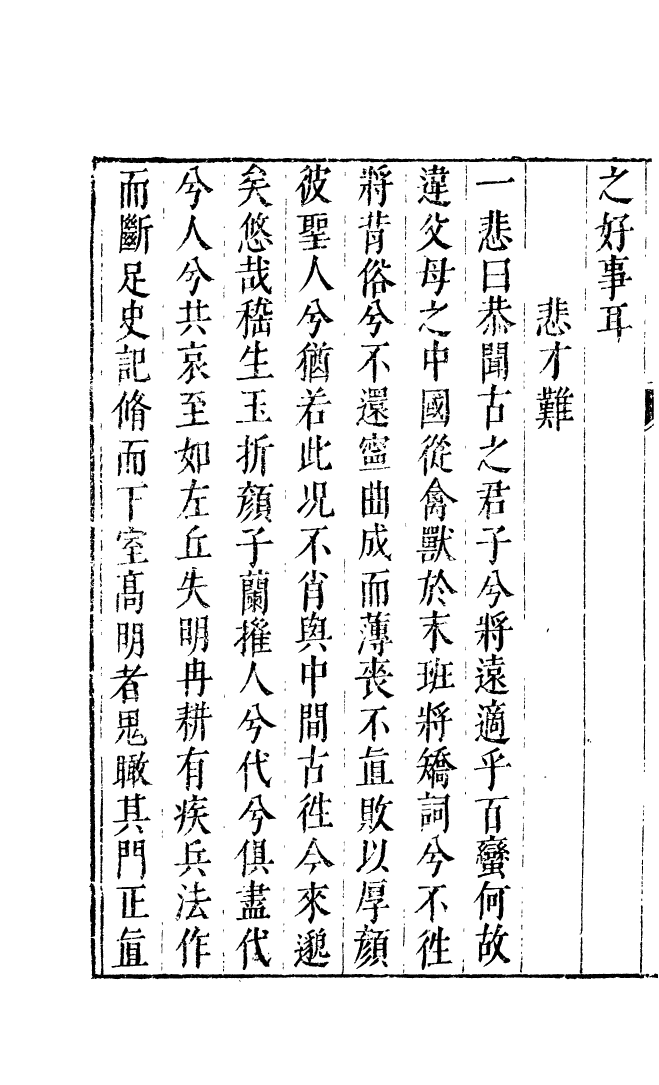 之好事耳
悲才難
一悲曰恭聞古之君子兮將遠適乎百蠻何故
違父母之中國從禽獸於末班將矯詞兮不徃
將背俗兮不還寧曲成而薄喪不直敗以厚顔
彼聖人兮猶若此况不肖與中間古徃今來邈
矣悠哉嵇生玉折顔子蘭摧人兮代兮俱盡代
兮人兮共哀至如左丘失明冉耕有疾兵法作
而斷足史記脩而下室髙明者鬼瞰其門正直